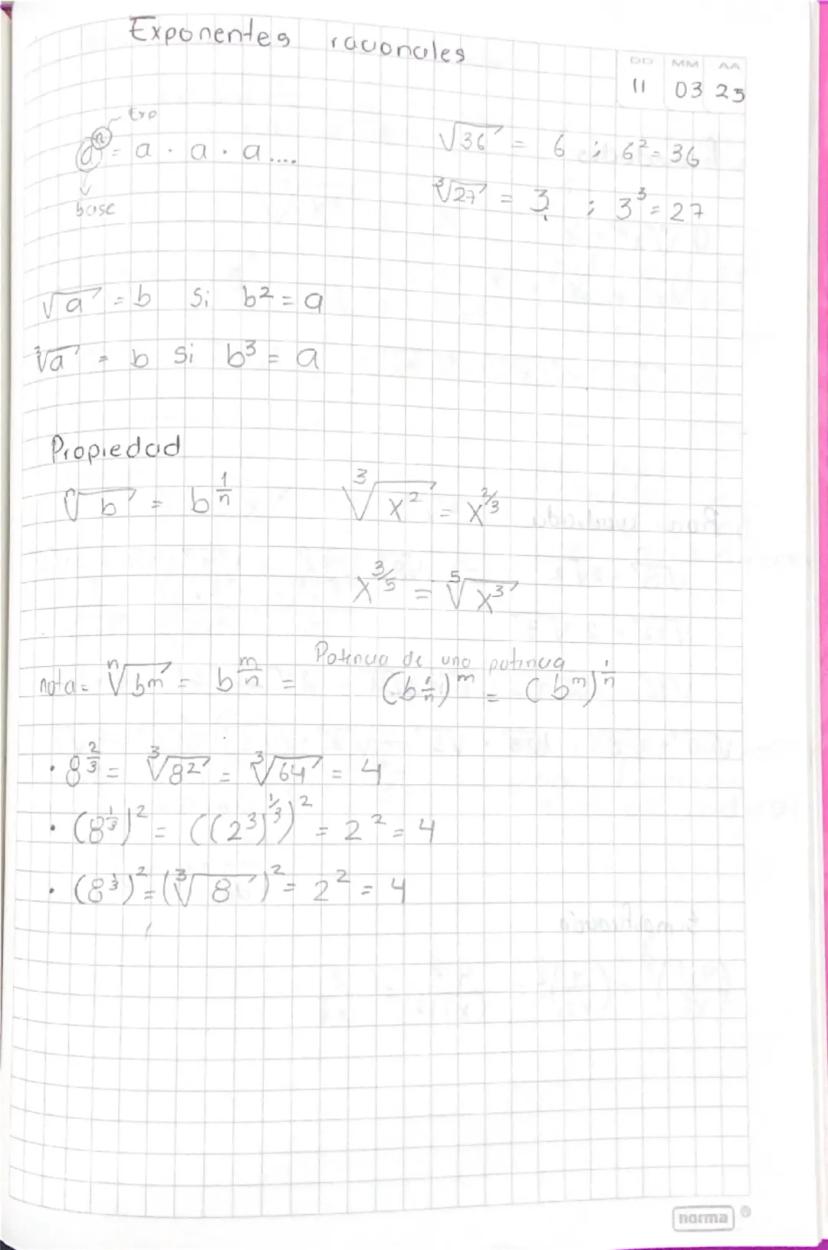 Exponentes racionales
DD MM AA
11 03 25
exp
aⁿ = a · a · a....
base
√36 = 6 ; 6² = 36
∛27 = 3 ; 3³ = 27
√a = b si b² = a
∛a = b si b³ = a
Propiedad
ⁿ√b = b^(1/n)
∛(x²) = x^(2/3)
x^(3/5) = ⁵√(x³)
Potencia de una potencia
nota = ⁿ√(bᵐ) = b^(m/n) = (b^(1/n))ᵐ = (bᵐ)^(1/n)
· 8^(2/3) = ∛(8²) = ∛64 = 4
· (8^(1/3))² = ((2³)^(1/3))² = 2² = 4
· (8^(1/3))² = (∛8)² = 2² = 4
norma